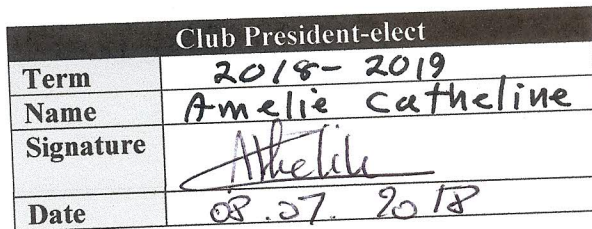 Club President-elect
Term 2018-2019
Name Amelie Catheline
Signature
Date 08.07.2018